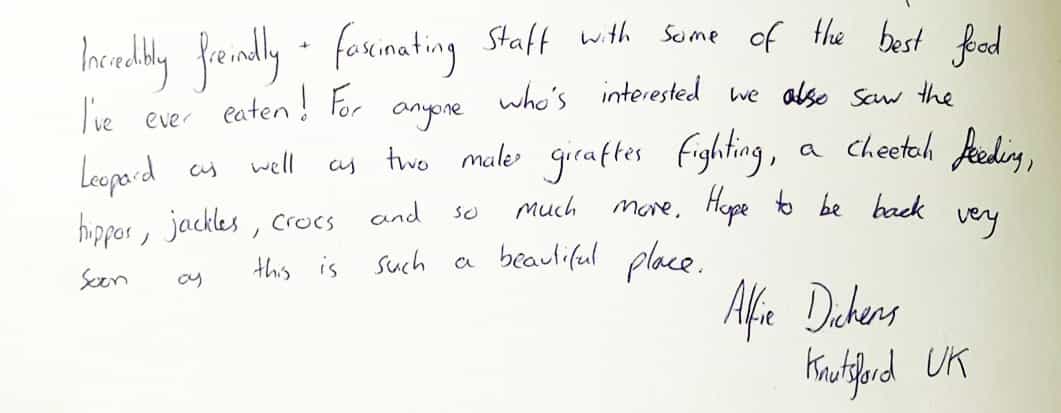 Incredibly freindly + fascinating staff with some of the best food
I've ever eaten! For anyone who's interested we also saw the
Leopard as well as two males giraffes fighting, a cheetah feeding,
hippos, jackles, crocs and so much more. Hope to be back very
soon as this is such a beautiful place.
Alfie Dickens
Knutsford UK